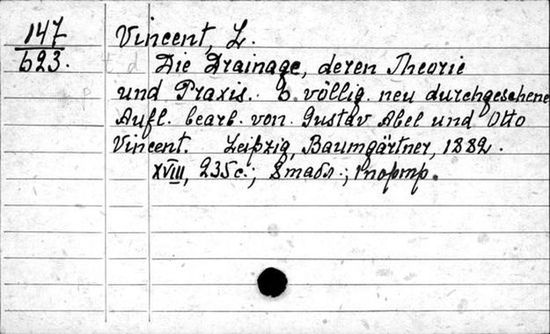 147
623.
Vincent, L.
Die Drainage, deren Theorie
und Praxis. 6. völlig. neu durchgesehene
Aufl. bearb. von. Gustav Abel und Otto
Vincent. Leipzig, Baumgärtner, 1882.
XVIII, 235 с.; 8 табл.; 1 портр.